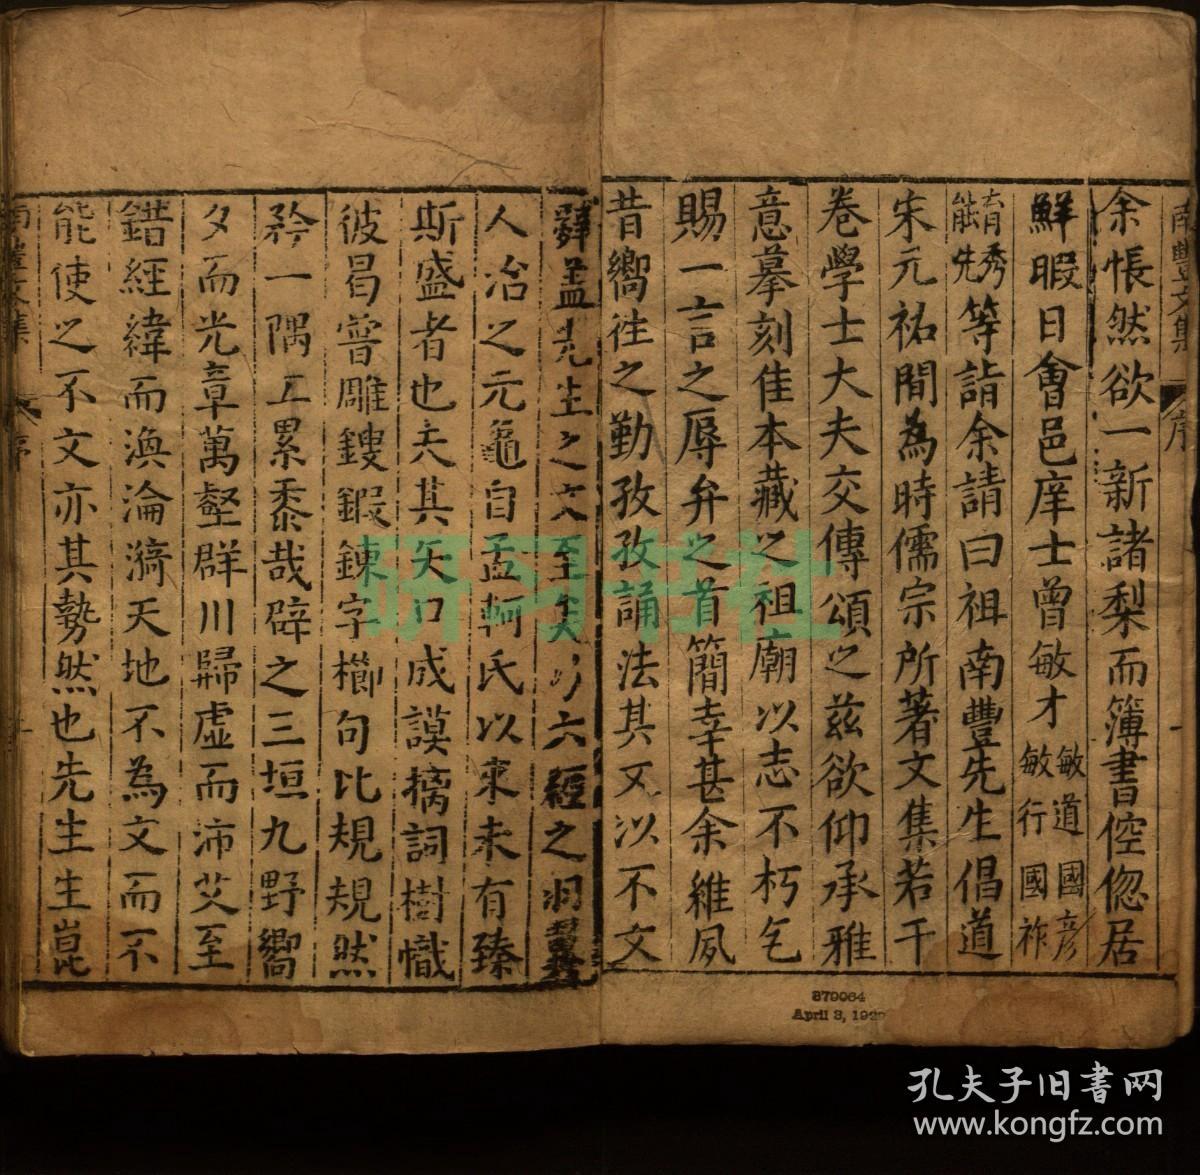 南豐文集 序
余悵然欲一新諸梨而簿書倥偬居
鮮暇日會邑庠士曾敏才敏道國彥敏行國祚
育秀能先等詣余請曰祖南豐先生倡道
宋元祐間為時儒宗所著文集若干
卷學士大夫交傳頌之茲欲仰承雅
意摹刻佳本藏之祖廟以志不朽乞
賜一言之辱弁之首簡幸甚余維夙
昔嚮徃之勤孜孜誦法其又以不文
辭盖先生之文至矣乃六經之羽翼
人冶之元龜自孟軻氏以來未有臻
斯盛者也夫其矢口成謨摛詞樹幟
彼曷嘗雕鎪鍜鍊字櫛句比規規然
矜一隅工累黍哉辟之三垣九野嚮
夕而光章萬壑群川歸虛而沛艾至
錯經緯而渙淪漪天地不為文而不
能使之不文亦其勢然也先生生崑
南豐文集 序
研习书社
879064
April 3, 192
孔夫子旧书网
www.kongfz.com